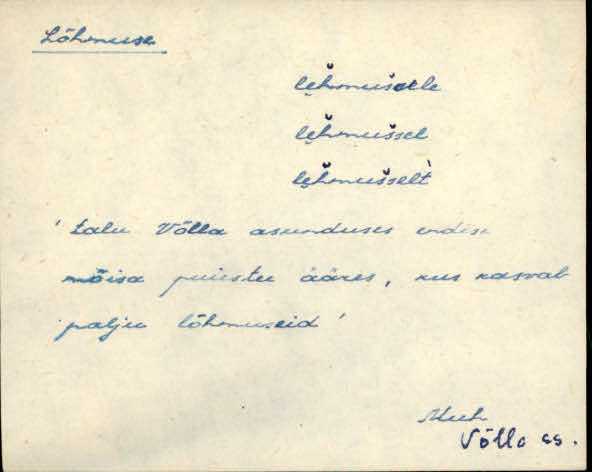 Lõhmuse
lḝhmušelle
lḝhmuššel
lḝhmuššelt̀
'talu Võlla asunduses endise
mõisa puiestu ääres, kus kasvab
palju lõhmuseid'
Muh
Võlla as.